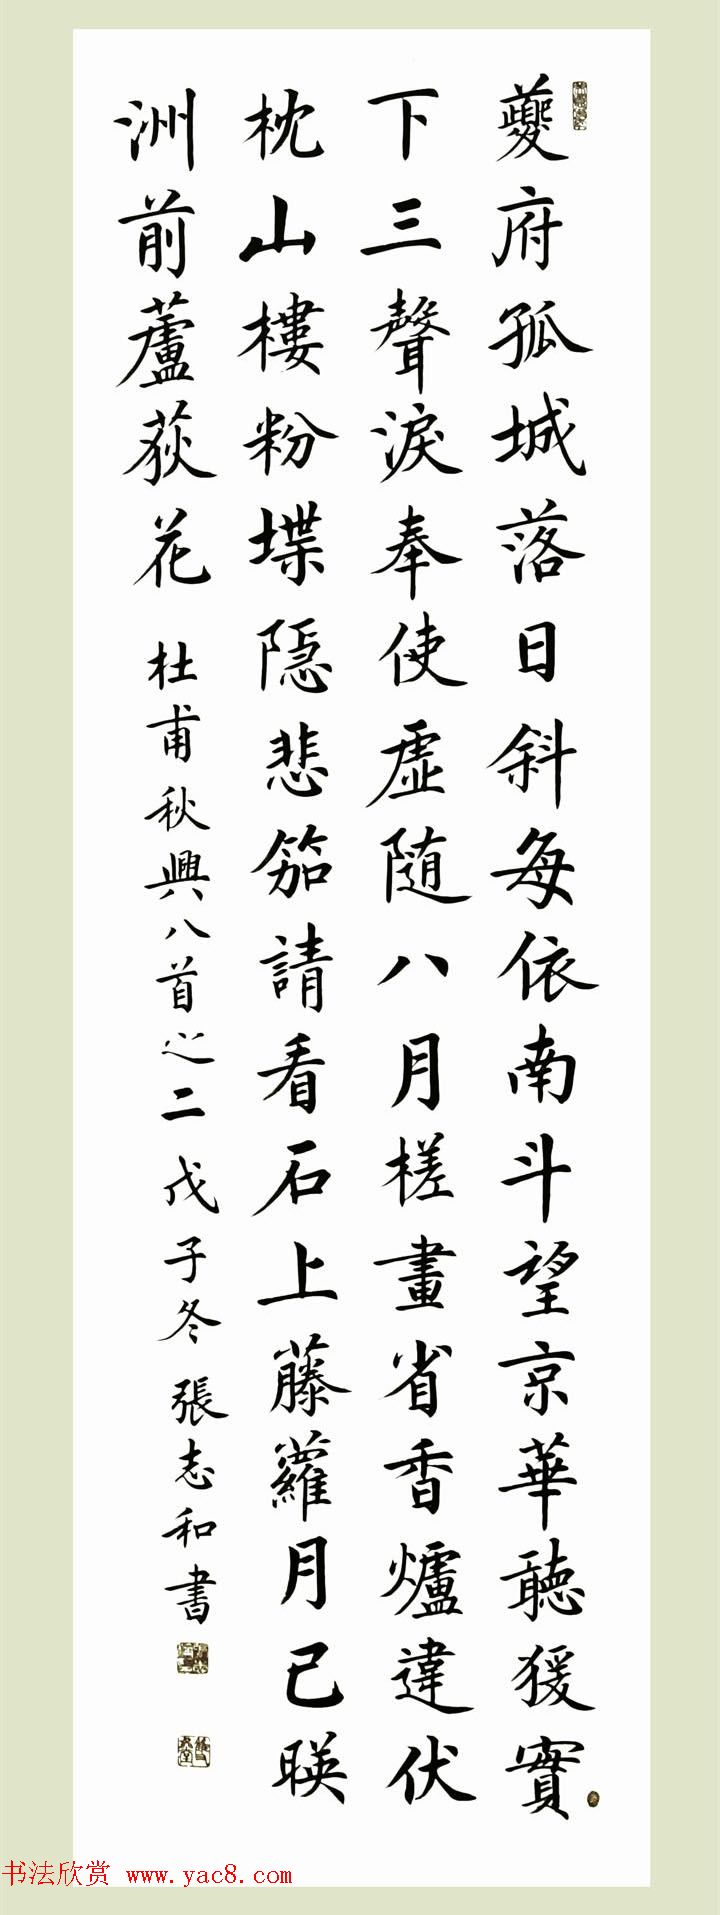 夔府孤城落日斜每依南斗望京華聽猨實
下三聲淚奉使虛隨八月槎畫省香爐違伏
枕山樓粉堞隱悲笳請看石上藤蘿月已暎
洲前蘆荻花
杜甫秋興八首之二戊子冬張志和書
书法欣赏 www.yac8.com